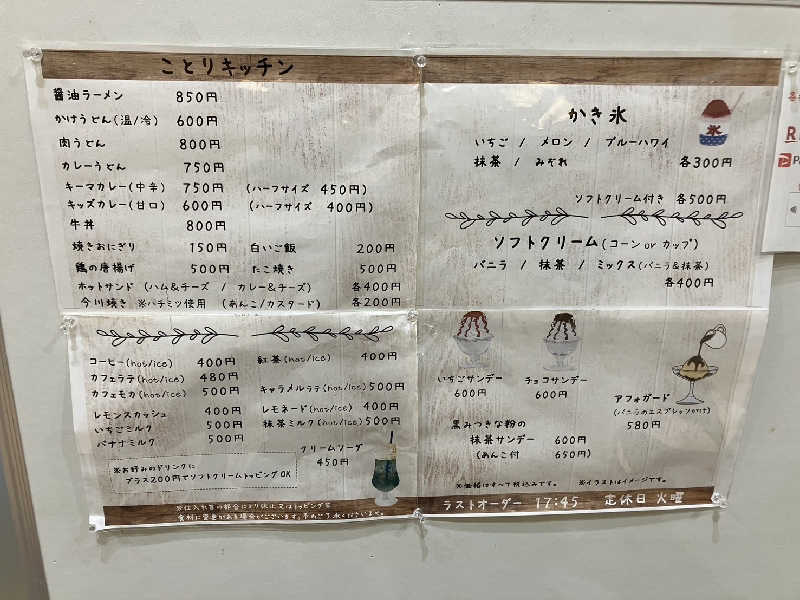 ことりキッチン
醤油ラーメン 850円
かけうどん(温/冷) 600円
肉うどん 800円
カレーうどん 750円
キーマカレー(中辛) 750円 (ハーフサイズ 450円)
キッズカレー(甘口) 600円 (ハーフサイズ 400円)
牛丼 800円
焼きおにぎり 150円 白いご飯 200円
鶏の唐揚げ 500円 たこ焼き 500円
ホットサンド (ハム&チーズ / カレー&チーズ) 各400円
今川焼き ※ハチミツ使用 (あんこ/カスタード) 各200円
コーヒー(hot/ice) 400円 紅茶(hot/ice) 400円
カフェラテ(hot/ice) 480円
カフェモカ(hot/ice) 500円 キャラメルラテ(hot/ice) 500円
レモンスカッシュ 400円 レモネード(hot/ice) 400円
いちごミルク 500円 抹茶ミルク(hot/ice) 500円
バナナミルク 500円
クリームソーダ
450円
※お好みのドリンクに
プラス200円でソフトクリームトッピングOK
※仕入れ等の都合により休止又はトッピング等
食材に変更がある場合がございます。予めご了承くださいませ。
かき氷
氷
いちご / メロン / ブルーハワイ
抹茶 / みぞれ 各300円
ソフトクリーム付き 各500円
ソフトクリーム(コーン or カップ)
バニラ / 抹茶 / ミックス(バニラ&抹茶)
各400円
いちごサンデー
600円
チョコサンデー
600円
アフォガード
(バニラのエスプレッソがけ)
580円
黒みつきな粉の
抹茶サンデー 600円
(あんこ付 650円)
※価格はすべて税込みです。 ※イラストはイメージです。
ラストオーダー 17:45 定休日 火曜